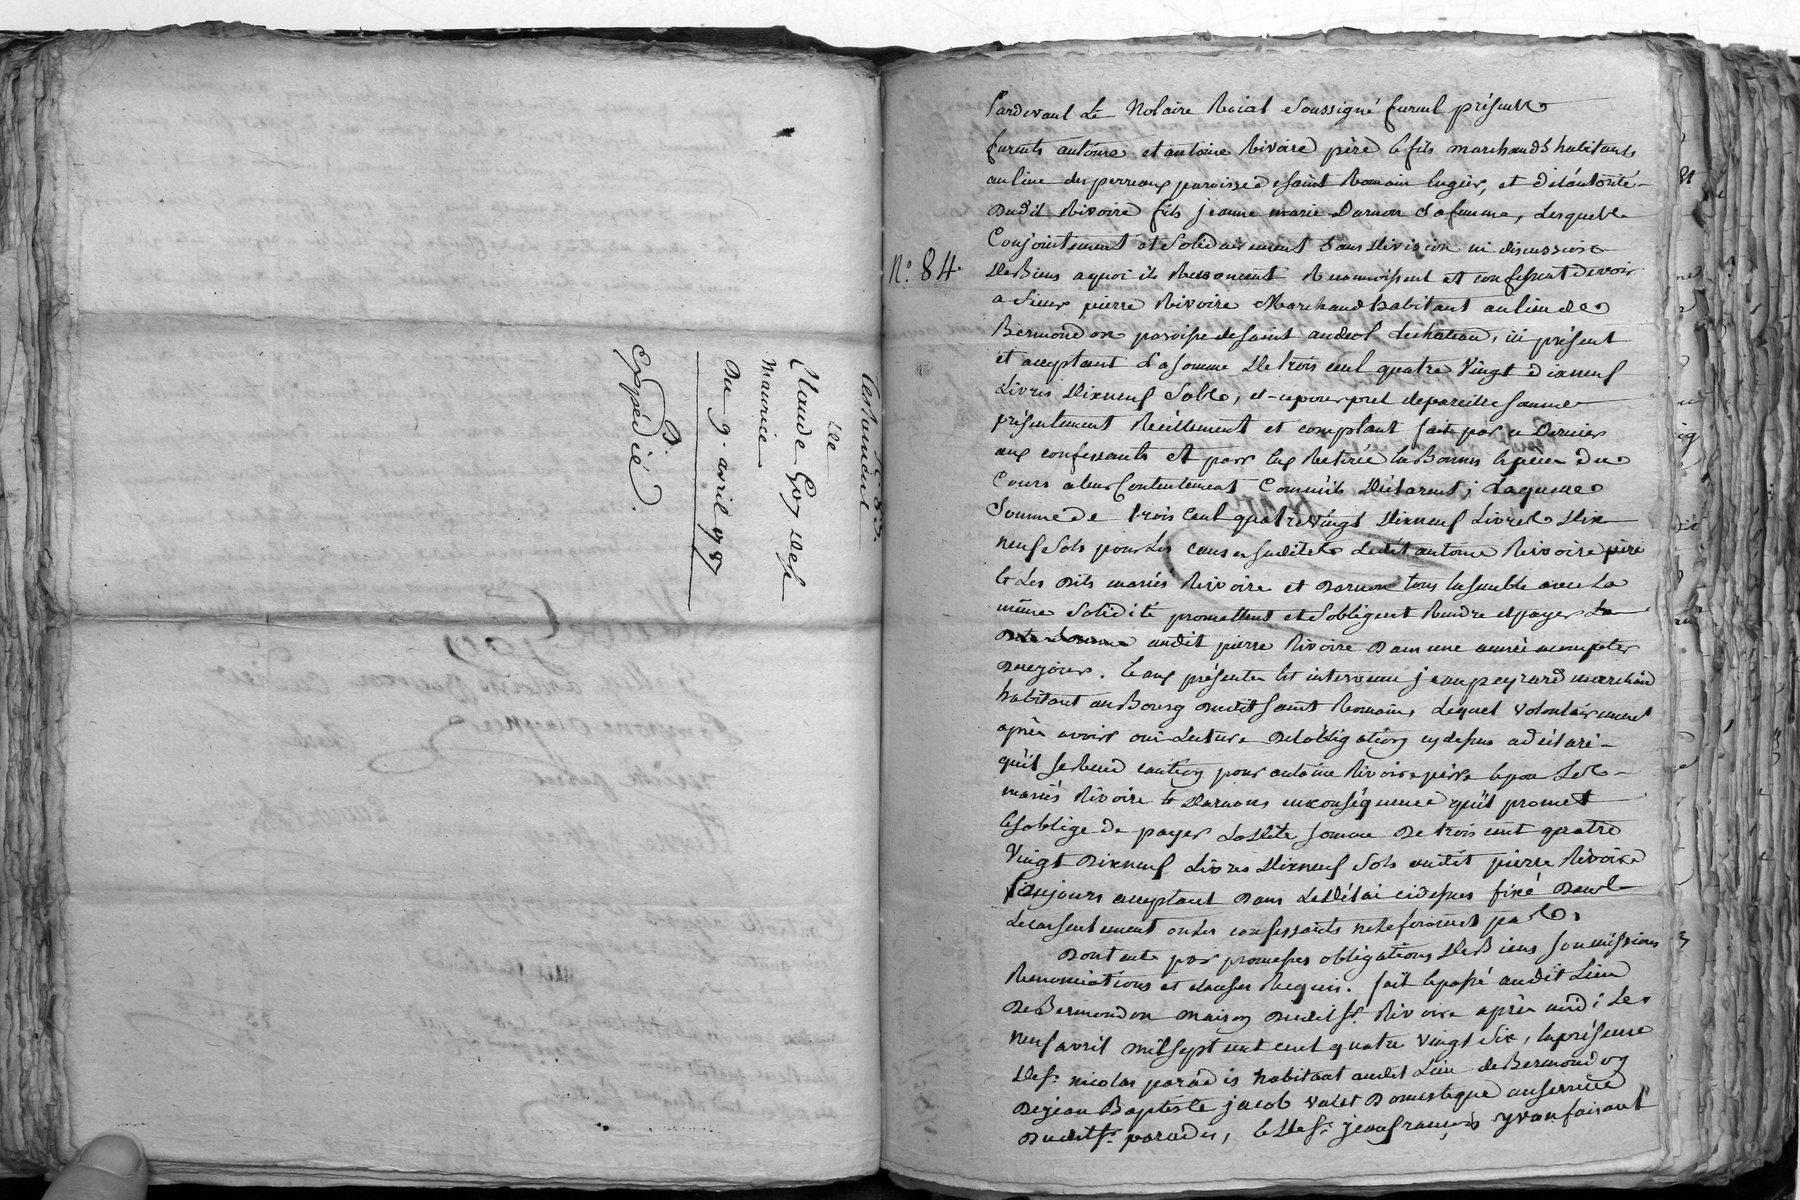 N° 83.
Testament
De
Claude Goy des
maurice
Du 9. avril 1787
Expédié.
N° 84.
Pardevant Le Notaire Roial soussigné furent présents
furents antoine et antoine Rivoire père & fils marchands habitants
au lieu des perreaux paroisse de saint Romain
Dudit Rivoire fils jeanne marie Darnon sa femme, Lesquels
Conjointement et solidairement sans division ni discussion
De Biens a quoi ils Renoncent Reconnoissent et confessent devoir
a sieur pierre Rivoire Marchand habitant au lieu de
Bermondon paroisse de saint andeol Lechateau, ici présent
et acceptant La somme De trois cent quatre vingt dixneuf
Livres Dixneuf Sols, et ce pour pret de pareille somme
présentement Réellement et comptant fait par ce Dernier
aux confessants et par Eux Retirée En Bonnes Especes du
Cours a leur Contentement Comm'ils Déclarent; Laquelle
Somme de trois Cent quatre vingt Dixneuf Livres Dix
neuf Sols pour Les causes susdites Ledit antoine Rivoire père
& Les dits mariés Rivoire et Darnon tous Ensemble avec La
même solidité promettent et s'obligent Rendre et payer La
audit pierre Rivoire Dans une année a compter
De ce jour. Et aux présentes Est intervenu jean peyrard marchand
habitant au Bourg dudit saint Romain, Lequel volontairement
après avoir oui Lecture De l'obligation cy dessus a déclaré
qu'il se Rend caution pour antoine Rivoire père & pour Les
mariés Rivoire & Darnon en conséquence qu'il promet
& s'oblige de payer Ladite somme De trois cent quatre
Vingt Dixneuf Livres Dixneuf Sols audit pierre Rivoire
Toujours acceptant Dans Le Délai ci dessus fixé Dans
Le cas seulement ou Les confessants ne Le feroient pas.
Dont acte par promesses obligations De Biens soumissions
Renonciations et clauses Requis. fait & passé audit Lieu
De Bermondon maison dudit Sr. Rivoire après midi Le
neuf avril mil sept cent quatre vingt six, En présence
De Sr. nicolas paradis habitant audit Lieu de Bermondon
De jean Baptiste jacob valet Domestique au service
Dudit Sr. paradis, & De Sr. jean françois yvan faisant